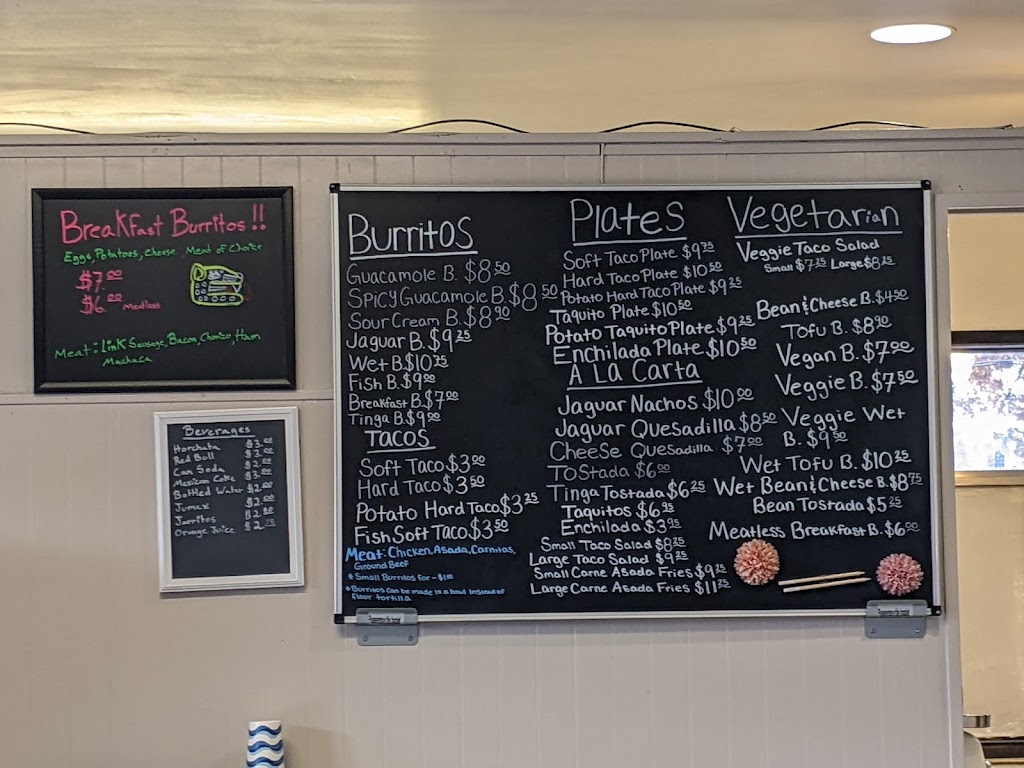 Breakfast Burritos!!
Eggs, Potatoes, Cheese Meat of Choice
$7.00
$6.00 Meatless
Meat: Link Sausage, Bacon, Chorizo, Ham
Machaca
Beverages
Horchata $3.00
Red Bull $3.00
Can Soda $2.00
Mexican Coke $3.00
Bottled Water $2.00
Jumex $2.00
Jarritos
Orange Juice $2.75
Burritos
Guacamole B. $8.50
Spicy Guacamole B. $8.50
Sour Cream B. $8.90
Jaguar B. $9.25
Wet B. $10.75
Fish B. $9.00
Breakfast B. $7.00
Tinga B. $9.00
Tacos
Soft Taco $3.00
Hard Taco $3.50
Potato Hard Taco $3.25
Fish Soft Taco $3.50
Meat: Chicken, Asada, Carnitas,
Ground Beef
* Small Burritos for -$1.00
* Burritos can be made in a bowl instead of
flour tortilla
Plates
Soft Taco Plate $9.75
Hard Taco Plate $10.50
Potato Hard Taco Plate $9.25
Taquito Plate $10.50
Potato Taquito Plate $9.25
Enchilada Plate $10.50
A La Carta
Jaguar Nachos $10.00
Jaguar Quesadilla $8.50
Cheese Quesadilla $7.00
Tostada $6.00
Tinga Tostada $6.25
Taquitos $6.95
Enchilada $3.95
Small Taco Salad $8.25
Large Taco Salad $9.25
Small Carne Asada Fries $9.25
Large Carne Asada Fries $11.25
Vegetarian
Veggie Taco Salad
Small $7.25 Large $8.25
Bean & Cheese B. $4.50
Tofu B. $8.90
Vegan B. $7.90
Veggie B. $7.50
Veggie Wet
B. $9.50
Wet Tofu B. $10.25
Wet Bean & Cheese B. $8.75
Bean Tostada $5.25
Meatless Breakfast B. $6.00